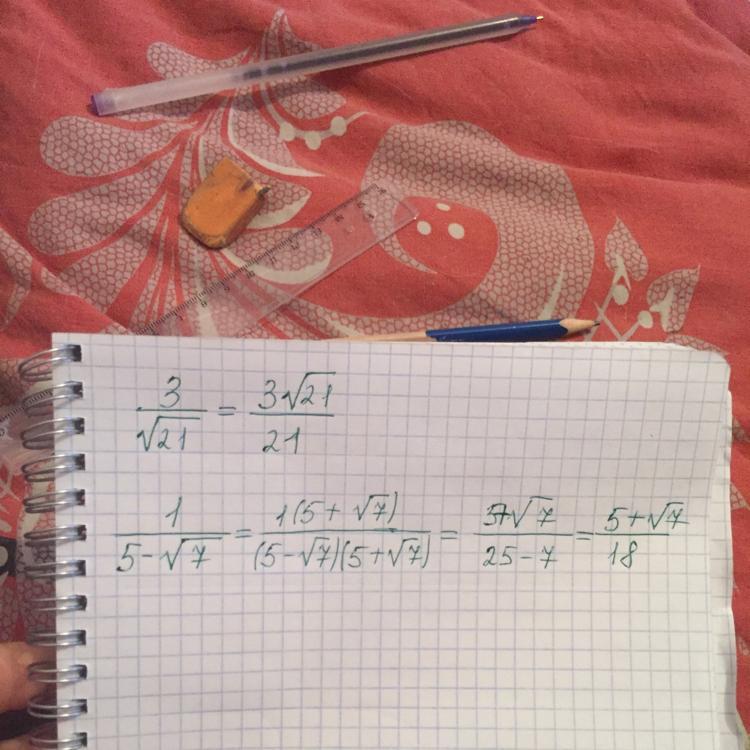 3/√21 = 3√21/21
1/(5-√7) = 1(5+√7)/((5-√7)(5+√7)) = (5+√7)/(25-7) = (5+√7)/18